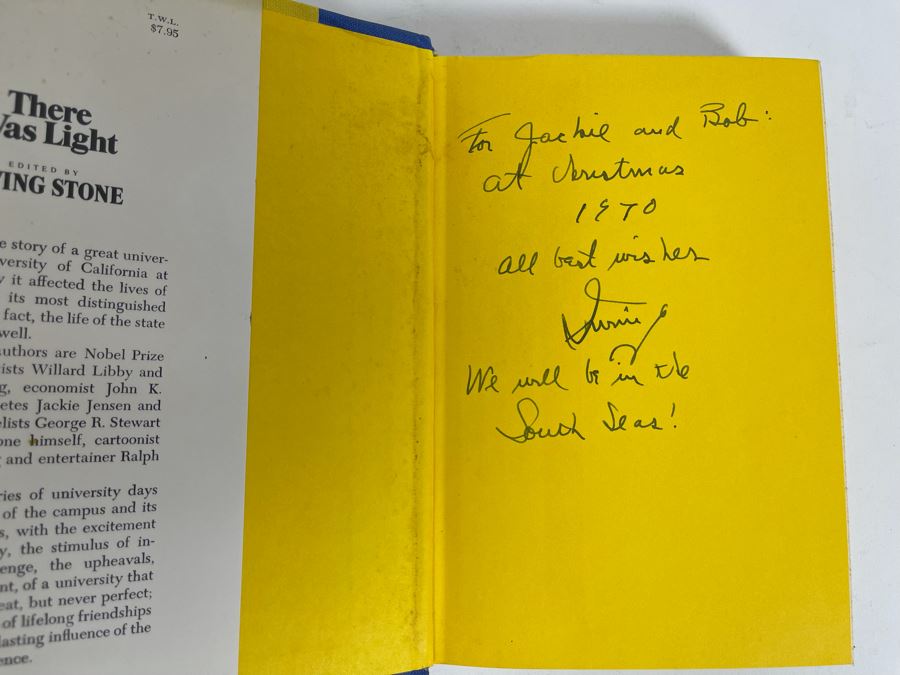 T.W.L.
$7.95
There
Was Light
EDITED BY
VING STONE
e story of a great univer-
versity of California at
y it affected the lives of
its most distinguished
fact, the life of the state
well.
authors are Nobel Prize
ists Willard Libby and
g, economist John K.
etes Jackie Jensen and
elists George R. Stewart
one himself, cartoonist
and entertainer Ralph
ries of university days
of the campus and its
s, with the excitement
y, the stimulus of in-
enge, the upheavals,
nt, of a university that
eat, but never perfect;
of lifelong friendships
lasting influence of the
ence.
For Jackie and Bob:
at Christmas
1970
all best wishes
Irving
We will be in the
South Seas!